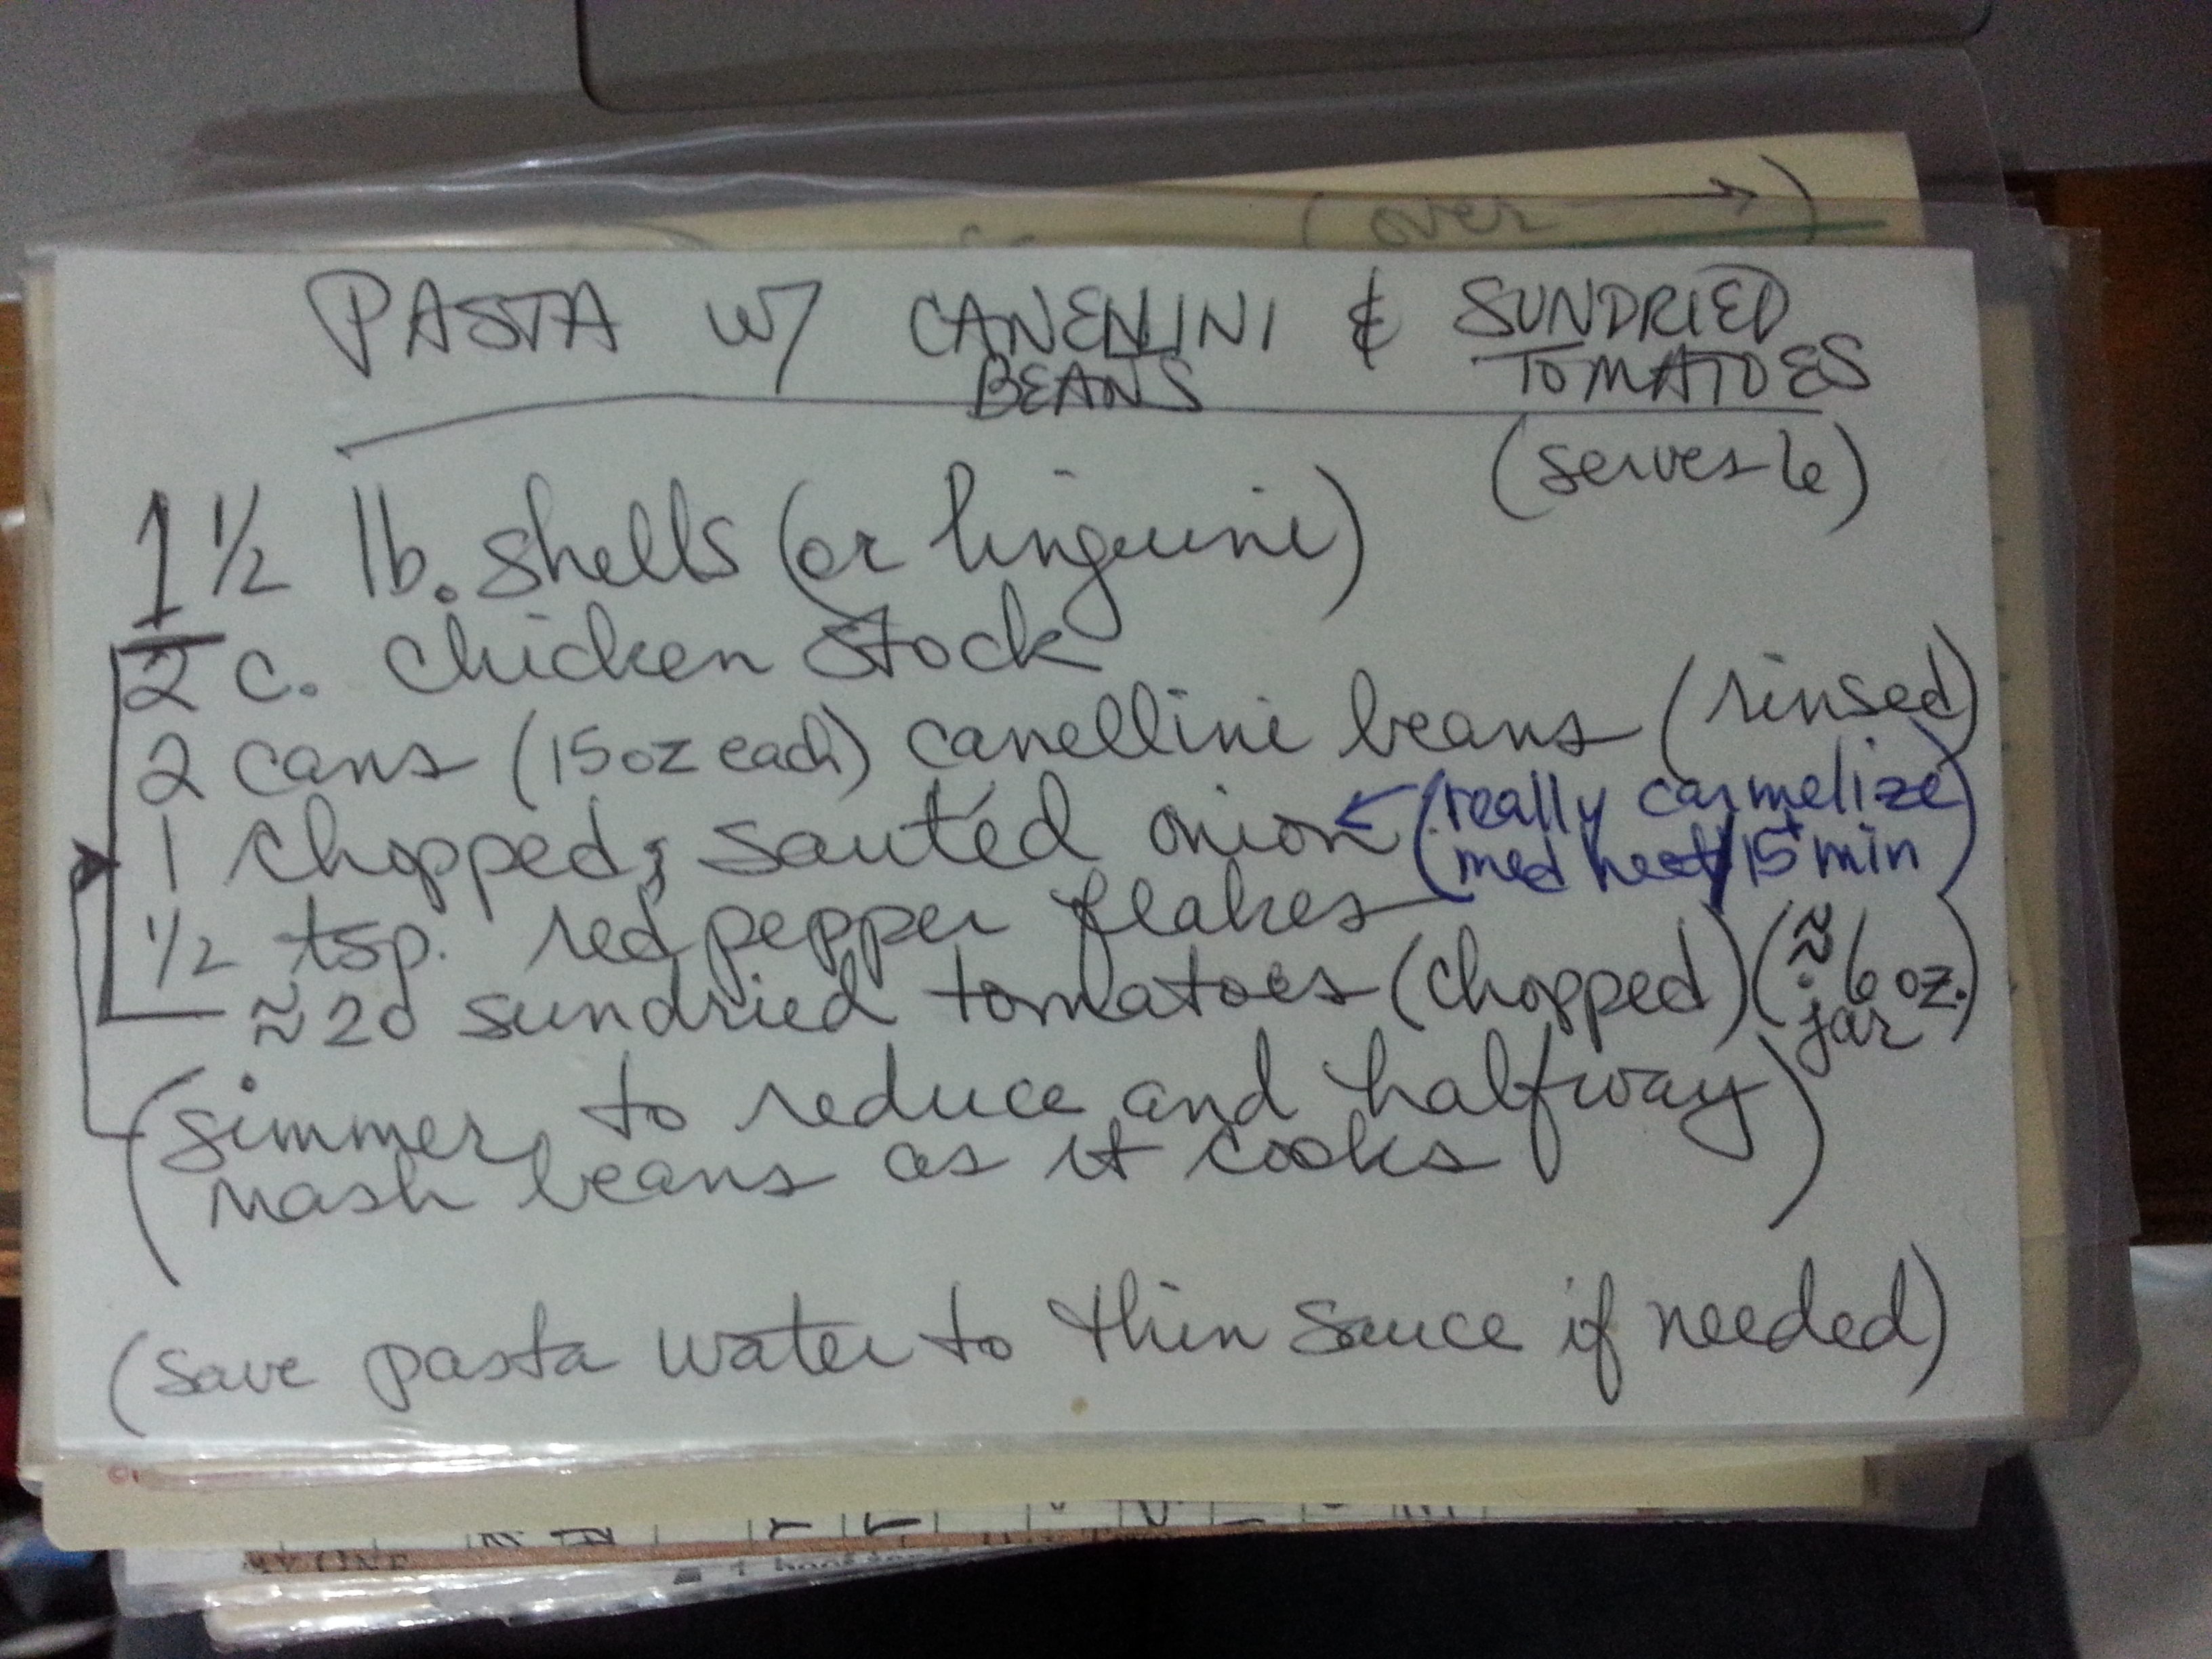 (over →)
PASTA W/ CANENLINI & SUNDRIED
BEANS TOMATOES
(serves 6)
1 1/2 lb. shells (or linguini)
2 c. chicken stock
2 cans (15 oz each) canelline beans (rinsed)
1 chopped, sautéd onion ← (really carmelize
med heat/15+ min)
1/2 tsp. red pepper flakes
≈20 sundried tomatoes (chopped) (≈6 oz.
jar)
(simmer, to reduce and halfway
mash beans as it cooks)
(save pasta water to thin sauce if needed)